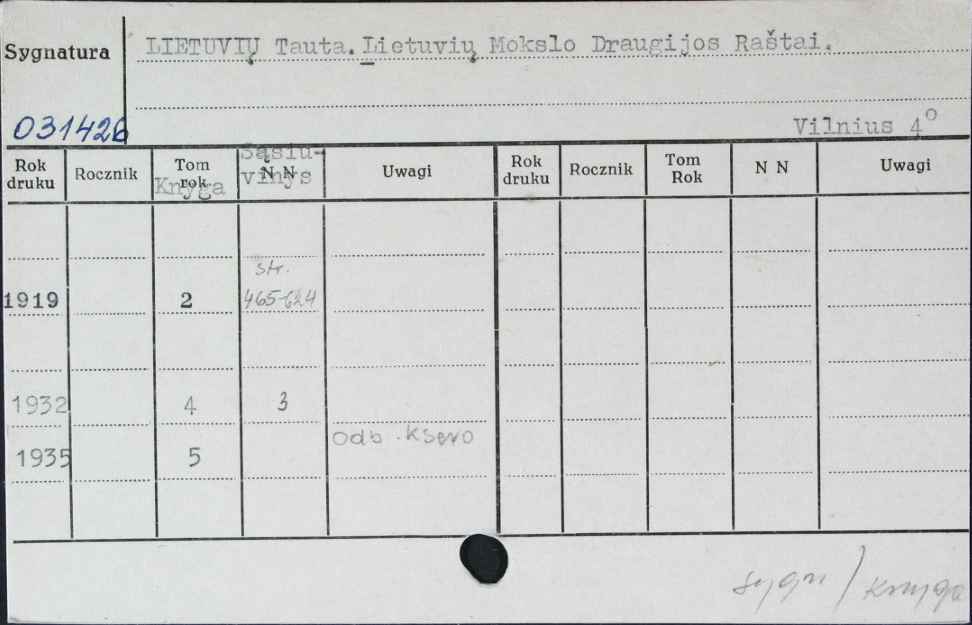 Sygnatura
LIETUVIŲ Tauta. Lietuvių Mokslo Draugijos Raštai.
031426
Vilnius 4°
Rok druku Rocznik Tom rok Knyga N N Sąsiu-vinys Uwagi Rok druku Rocznik Tom Rok N N Uwagi
str.
1919 2 465-624
1932 4 3
odb. ksero
1935 5
sygn / knyga